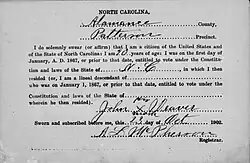 NORTH CAROLINA,
Alamance County,
Patterson Precinct.
I do solemnly swear (or affirm) that I am a citizen of the United States and
of the State of North Carolina: I am 70 years of age: I was on the first day
of January, A. D. 1867, or prior to that date, entitled to vote under the Constitution
and laws of the State of N. C., in which I then
resided (or, I am a lineal descendant of
who was on January 1, 1867, or prior to that date, entitled to vote under the
Constitution and laws of the State of
wherein he then resided).
John
Sworn and subscribed before me, this day of Oct 1902.
Registrar.